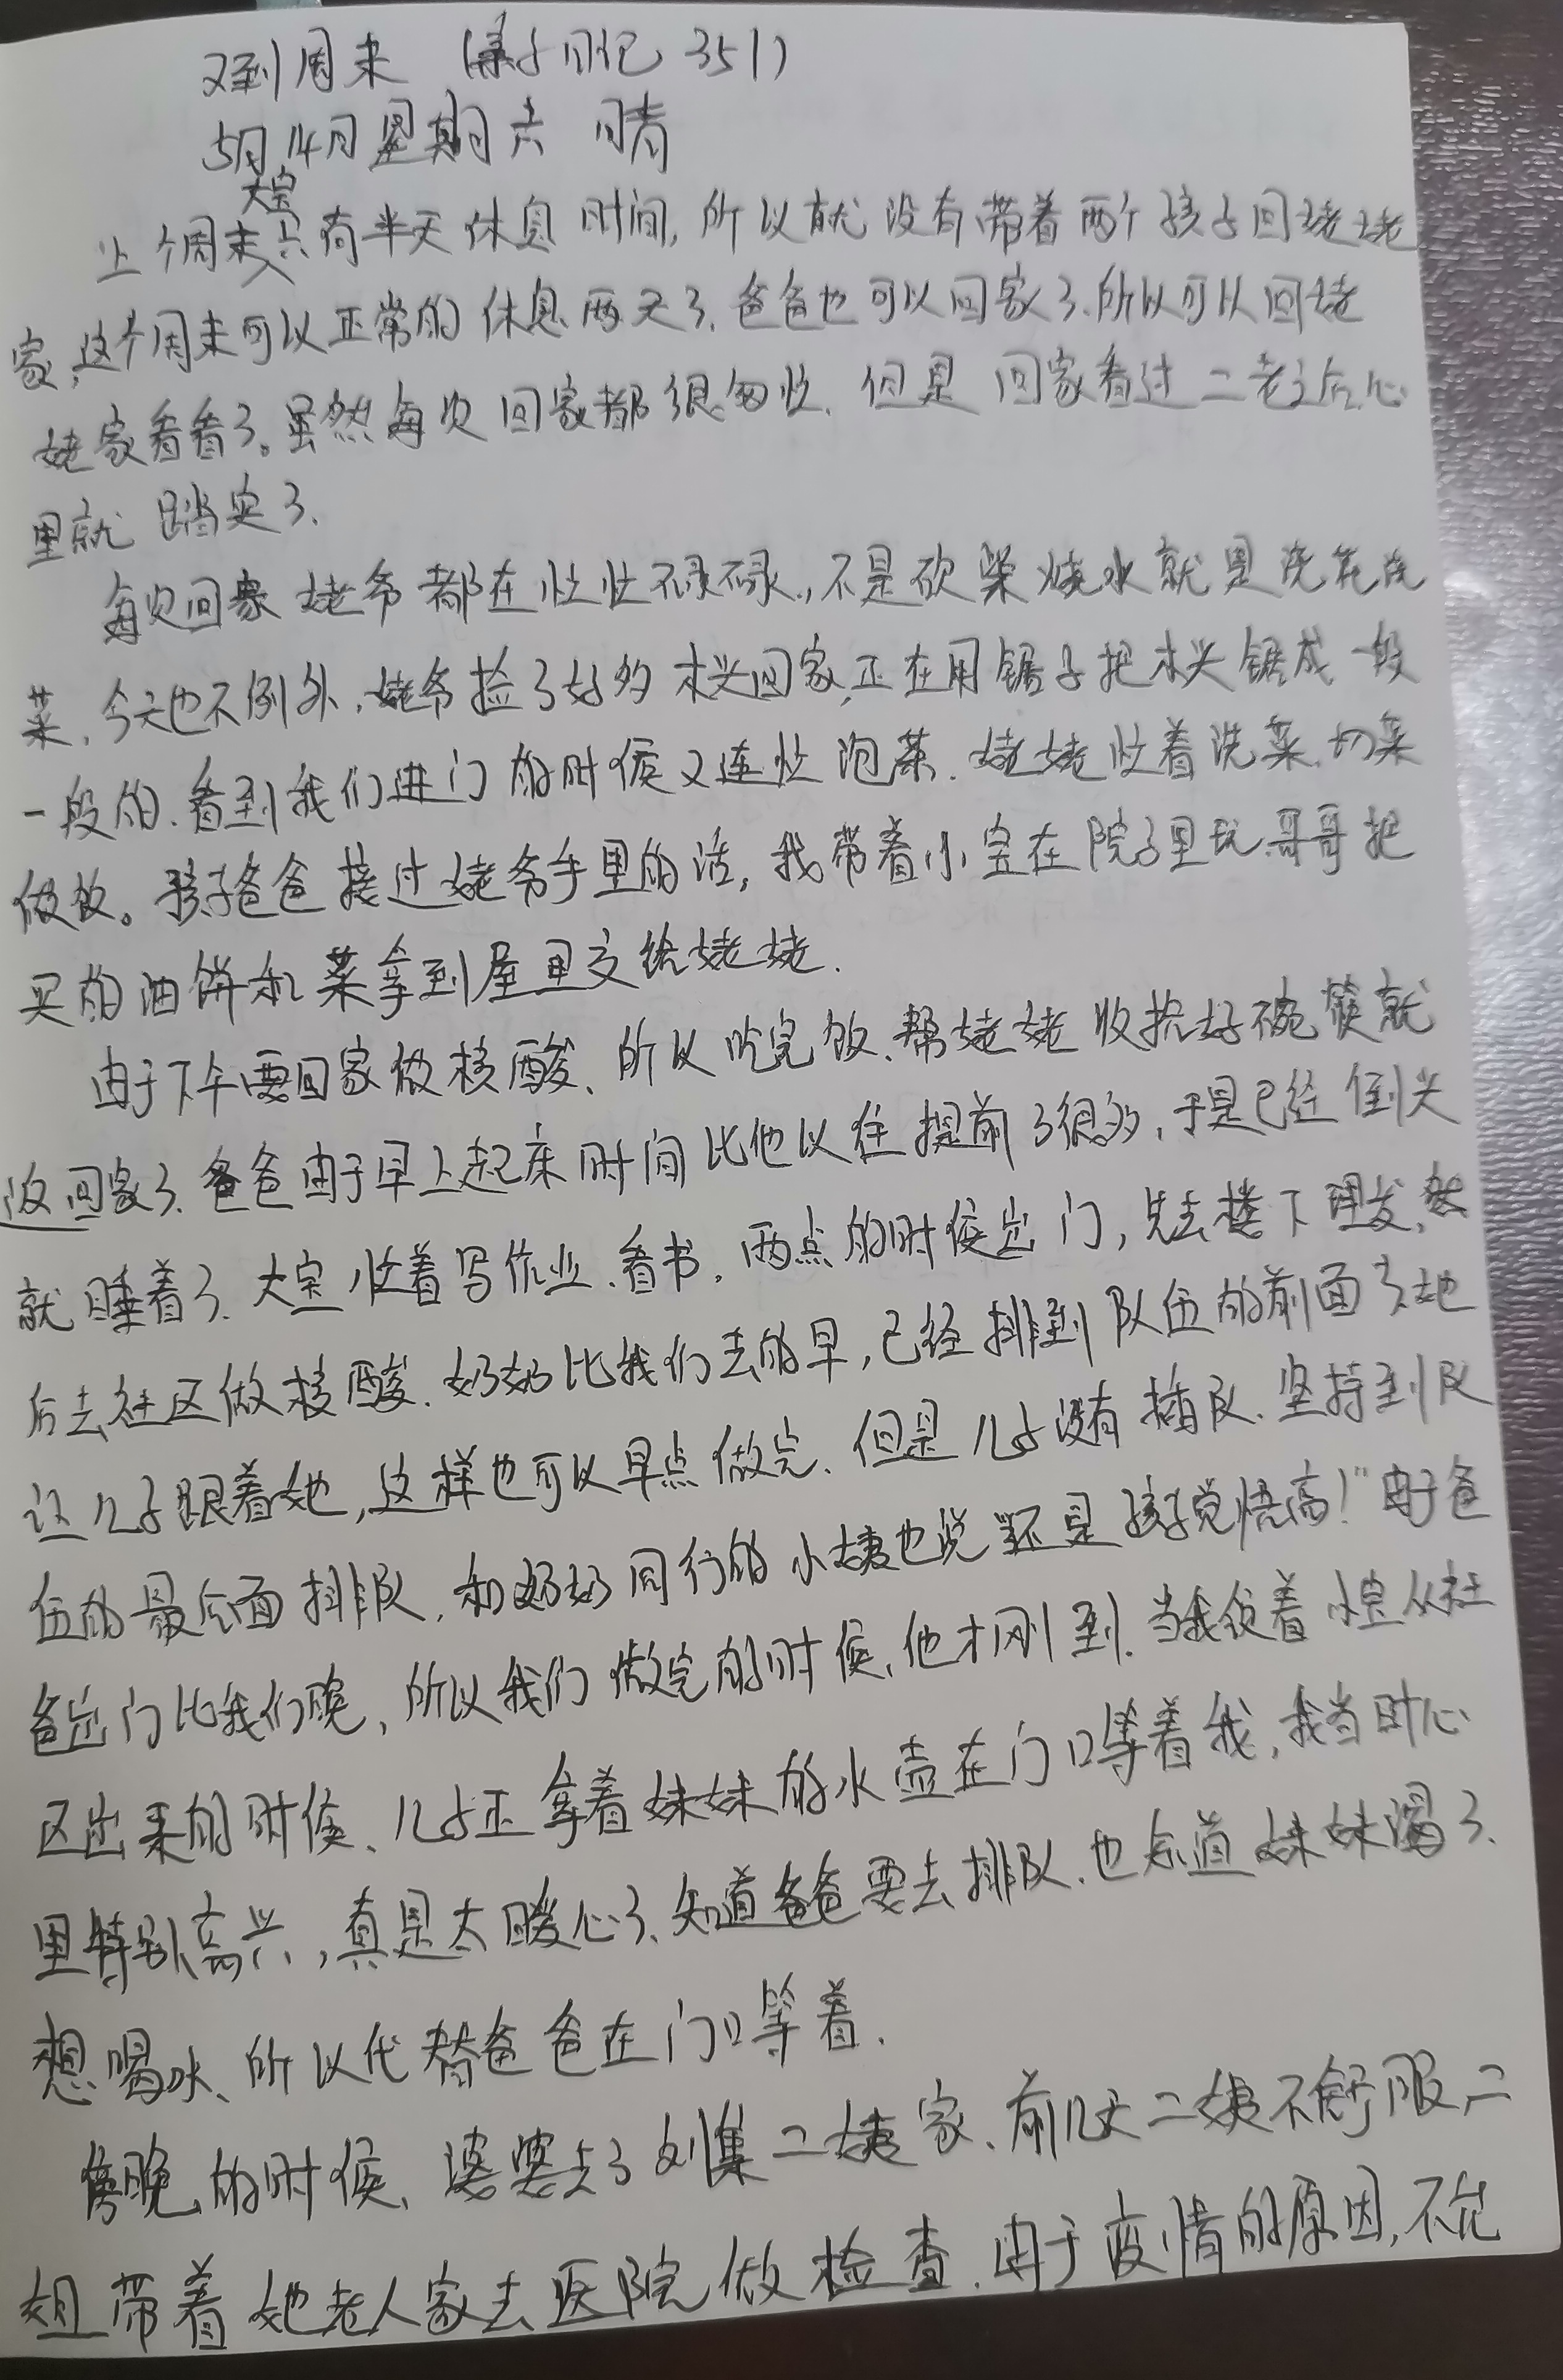 又到周末 (亲子日记 351)
5月14日 星期六 晴
上个周末大宝只有半天休息时间,所以就没有带着两个孩子回姥姥
家,这个周末可以正常的休息两天了.爸爸也可以回家了.所以可以回姥
姥家看看了。虽然每次回家都很匆忙.但是回家看过二老之后心
里就踏实了.
每次回家姥爷都在忙忙碌碌,不是砍柴烧水就是洗菜
菜.今天也不例外,姥爷捡了好多木头回家,正在用锯子把木头锯成一段
一段的.看到我们进门的时候又连忙泡茶.姥姥忙着洗菜.切菜
做饭。孩子爸爸接过姥爷手里的活,我带着小宝在院子里玩.哥哥把
买的油饼和菜拿到屋里交给姥姥.
由于下午要回家做核酸、所以吃完饭、帮姥姥收拾好碗筷就
返回家了.爸爸由于早上起床时间比他以往提前了很多,于是已经倒头
就睡着了.大宝忙着写作业.看书.两点的时候出门,先去楼下理发,然
后去社区做核酸.奶奶比我们去的早,已经排到队伍的前面了.她
让儿子跟着她,这样也可以早点做完、但是儿子没有插队.坚持到队
伍的最后面排队,和奶奶同行的小姨也说"还是孩子觉悟高!"由于爸
爸出门比我们晚,所以我们做完的时候,他才刚到.当我领着小宝从社
区出来的时候、儿子正拿着妹妹的水壶在门口等着我,我当时心
里特别高兴,真是太暖心了、知道爸爸要去排队.也知道妹妹渴了.
想喝水、所以代替爸爸在门口等着.
傍晚的时候、婆婆去了刘集二姨家、前几天二姨不舒服,二
姐带着她老人家去医院做检查.由于疫情的原因,不允